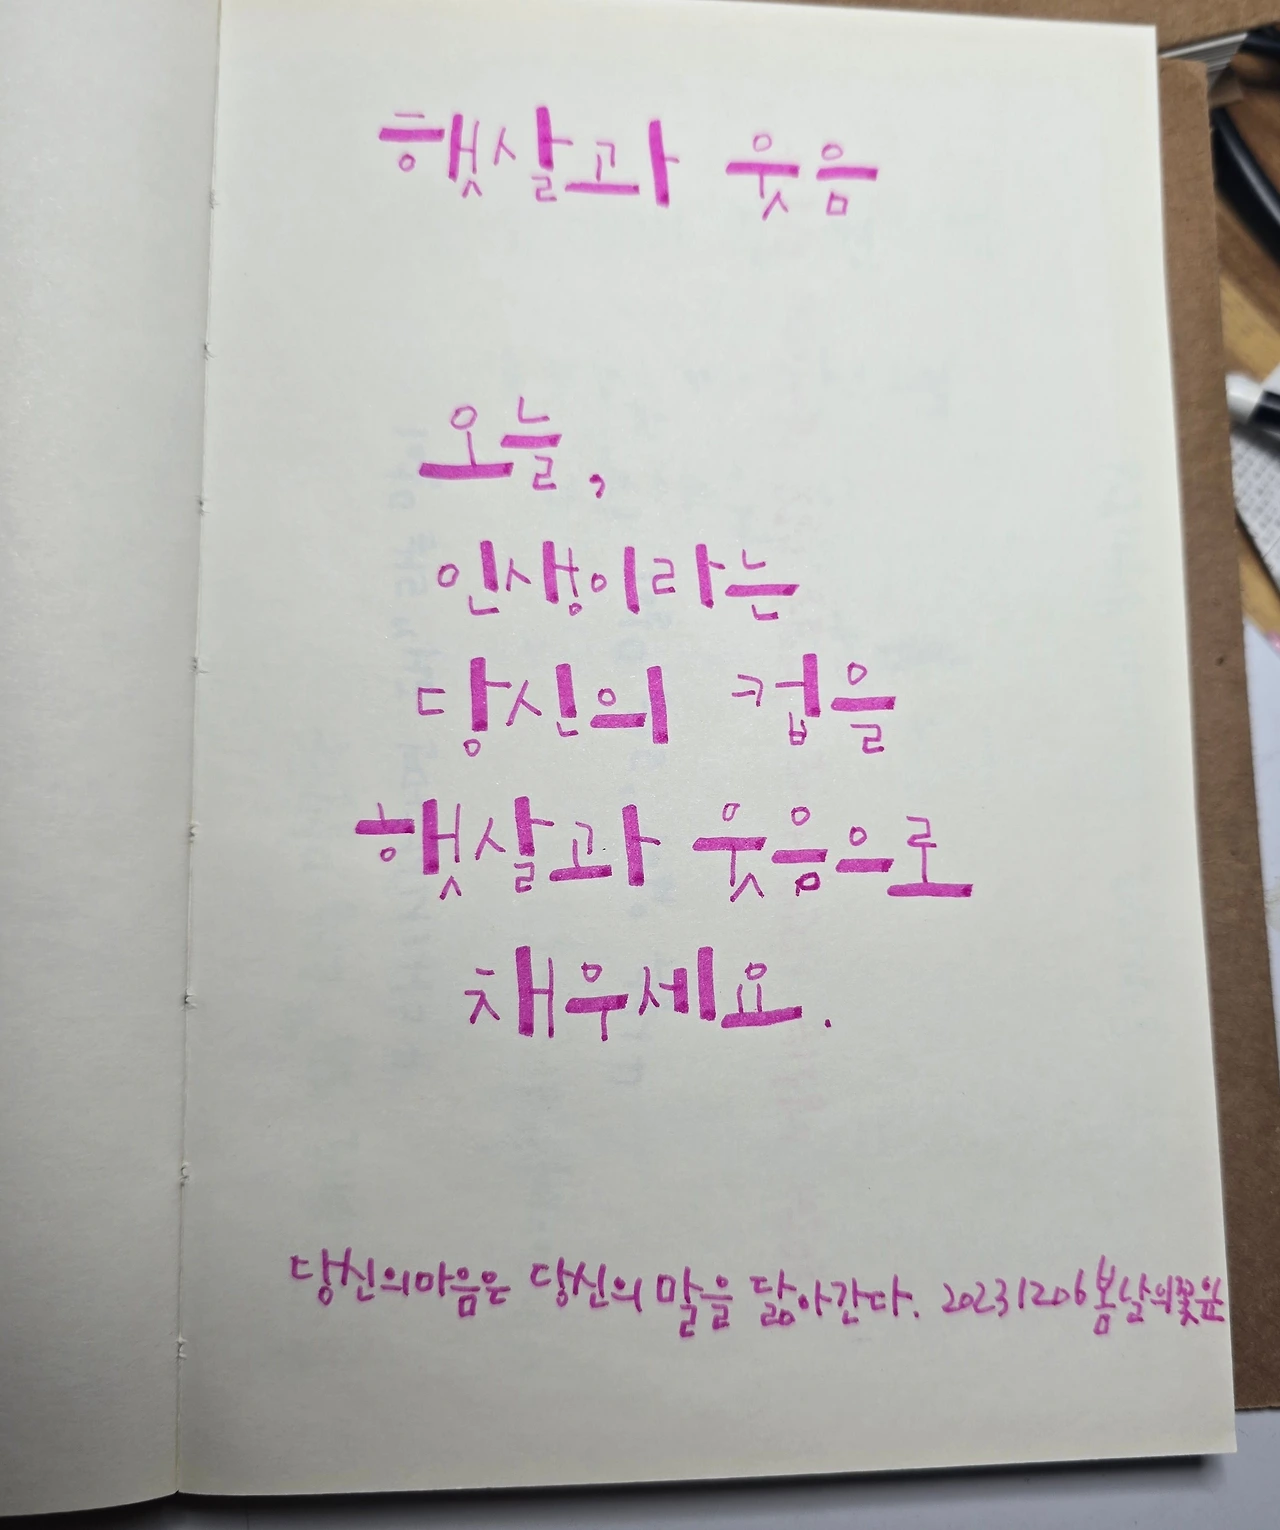 햇살과 웃음
오늘,
인생이라는
당신의 컵을
햇살과 웃음으로
채우세요.
당신의마음은 당신의 말을 닮아간다. 20231206봄날의꽃잎